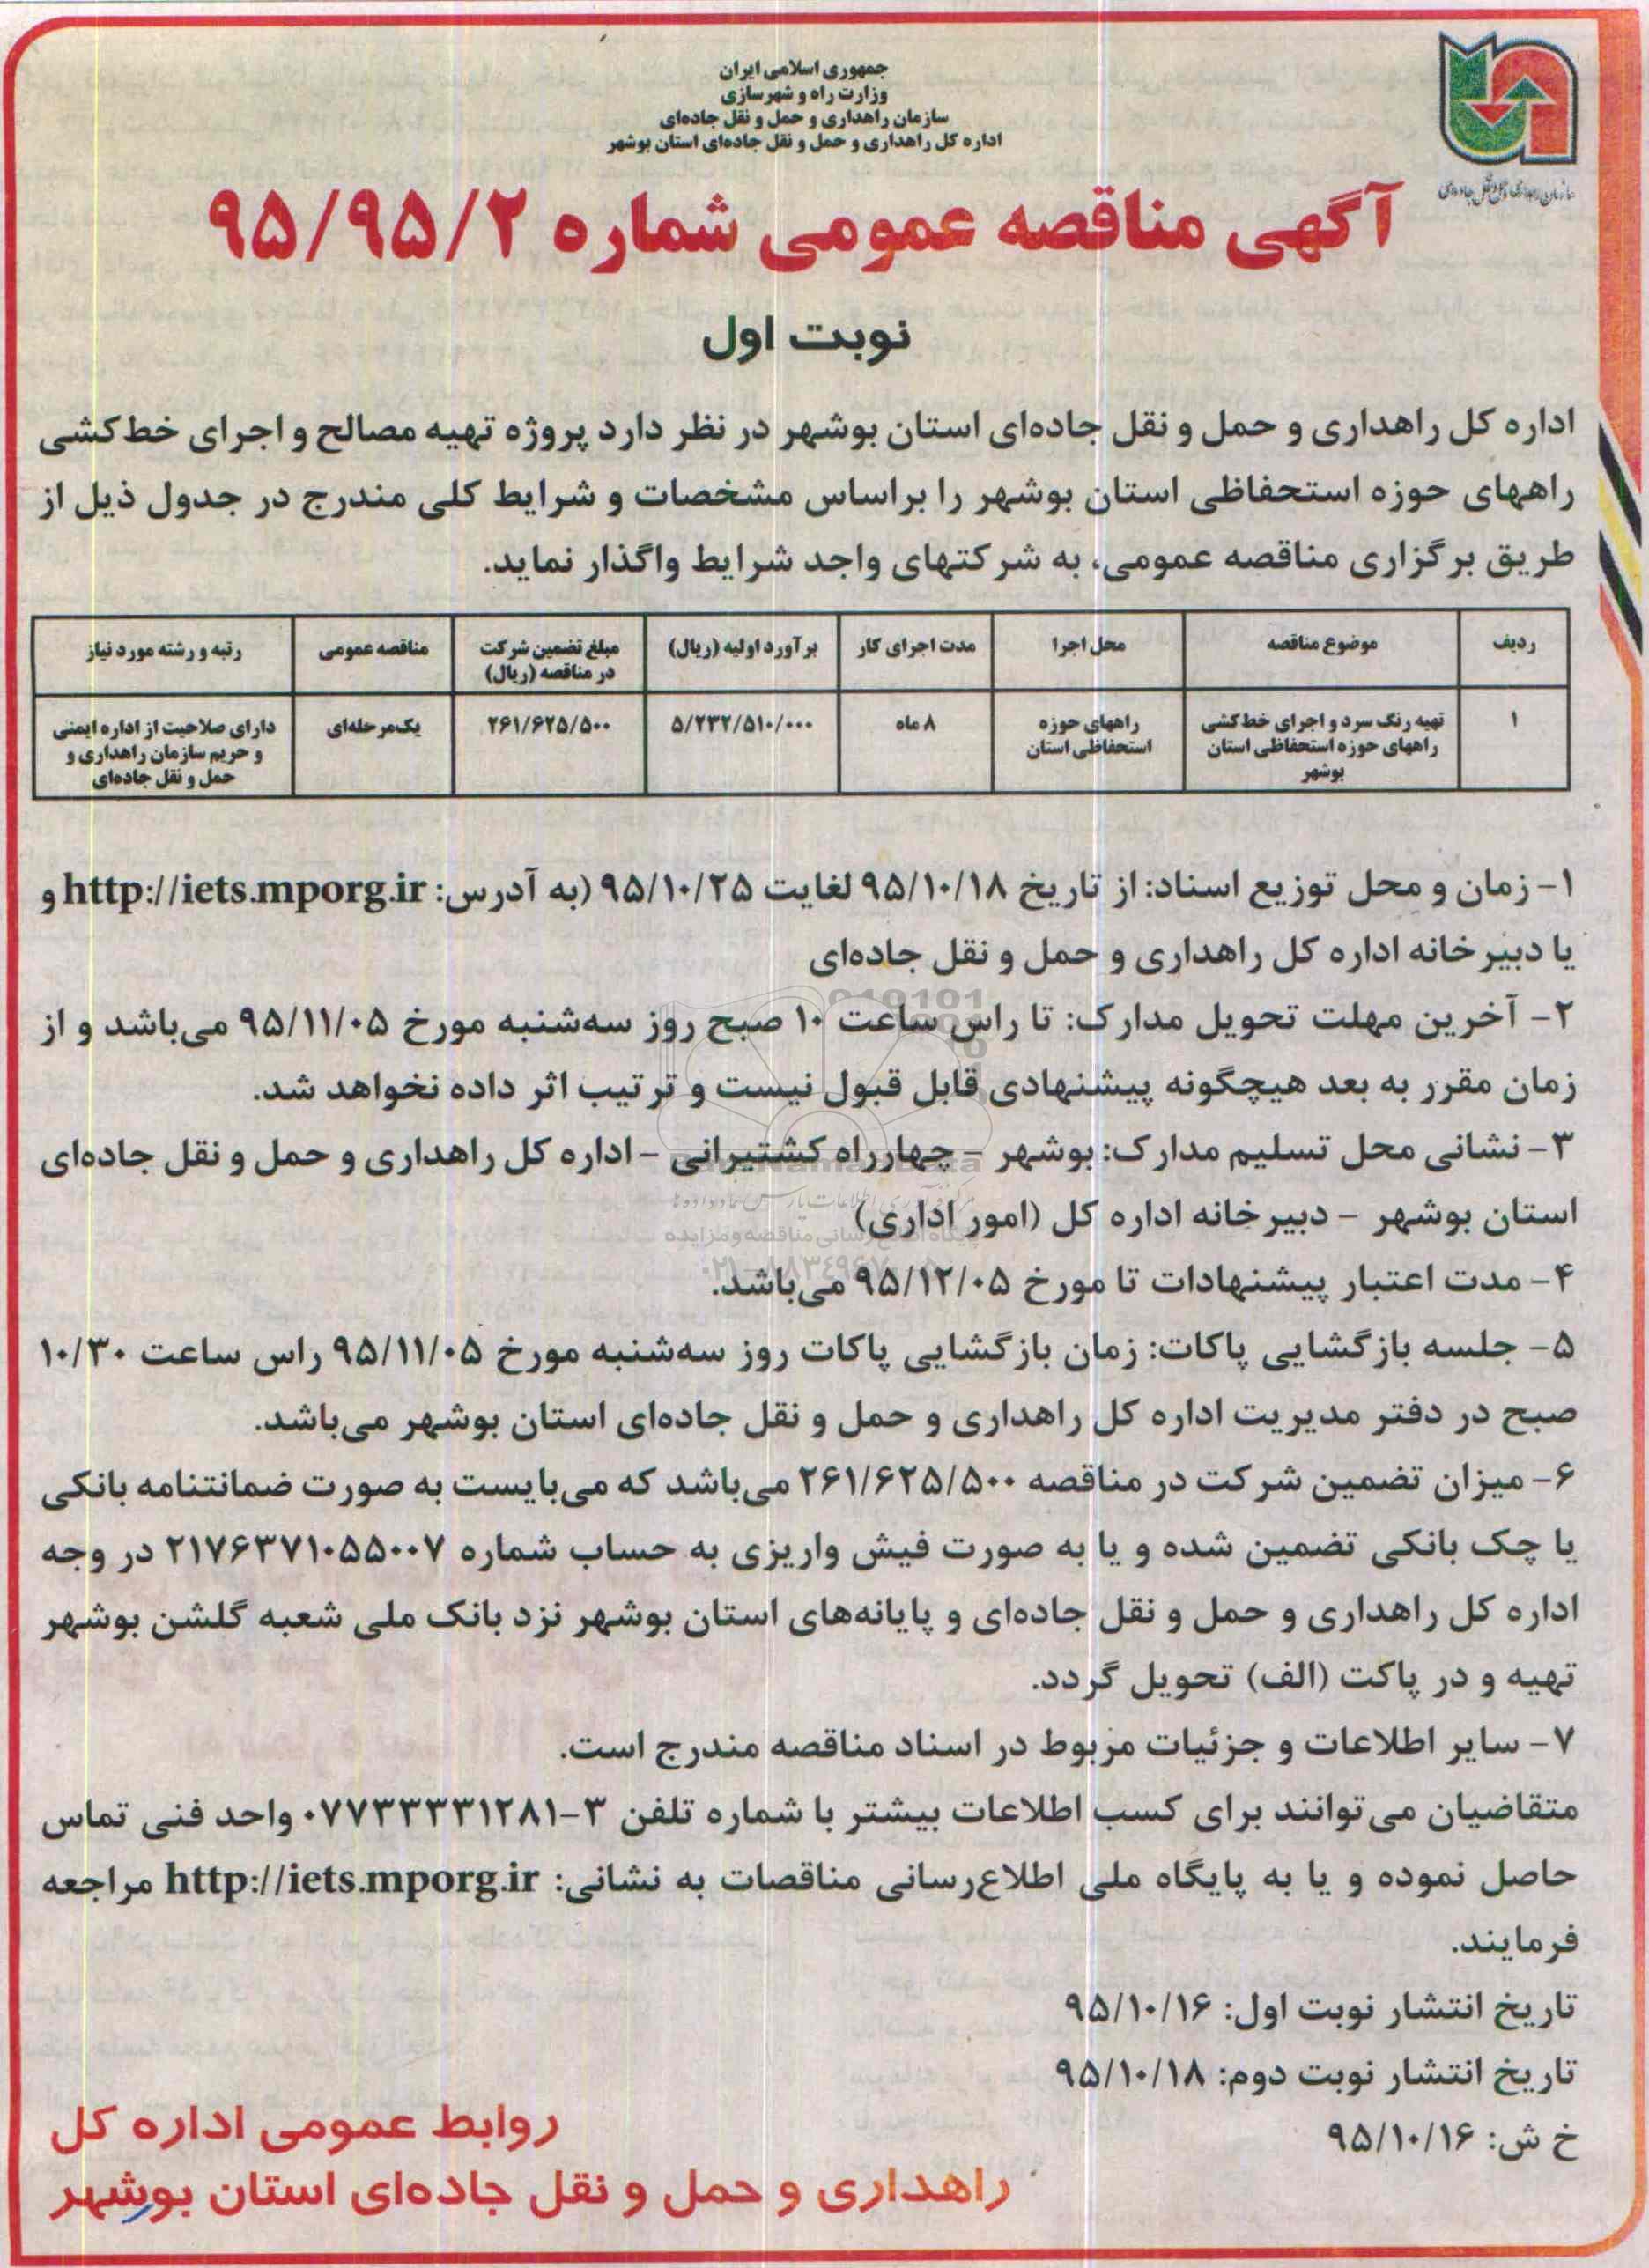 جمهوری اسلامی ایران
وزارت راه و شهرسازی
سازمان راهداری و حمل و نقل جاده‌ای
اداره کل راهداری و حمل و نقل جاده‌ای استان بوشهر
سازمان راهداری و حمل و نقل جاده‌ای
آگهی مناقصه عمومی شماره ۹۵/۹۵/۲
نوبت اول
اداره کل راهداری و حمل و نقل جاده‌ای استان بوشهر در نظر دارد پروژه تهیه مصالح و اجرای خط‌کشی
راههای حوزه استحفاظی استان بوشهر را براساس مشخصات و شرایط کلی مندرج در جدول ذیل از
طریق برگزاری مناقصه عمومی، به شرکتهای واجد شرایط واگذار نماید.
ردیف موضوع مناقصه محل اجرا مدت اجرای کار برآورد اولیه (ریال) مبلغ تضمین شرکت مناقصه عمومی رتبه و رشته مورد نیاز
در مناقصه (ریال)
۱ تهیه رنگ سرد و اجرای خط‌کشی راههای حوزه ۸ ماه ۵/۲۳۲/۵۱۰/۰۰۰ ۲۶۱/۶۲۵/۵۰۰ یک‌مرحله‌ای دارای صلاحیت از اداره ایمنی
راههای حوزه استحفاظی استان استحفاظی استان و حریم سازمان راهداری و
بوشهر حمل و نقل جاده‌ای
۱- زمان و محل توزیع اسناد: از تاریخ ۹۵/۱۰/۱۸ لغایت ۹۵/۱۰/۲۵ (به آدرس: http://iets.mporg.ir و
یا دبیرخانه اداره کل راهداری و حمل و نقل جاده‌ای
۲- آخرین مهلت تحویل مدارک: تا راس ساعت ۱۰ صبح روز سه‌شنبه مورخ ۹۵/۱۱/۰۵ می‌باشد و از
زمان مقرر به بعد هیچگونه پیشنهادی قابل قبول نیست و ترتیب اثر داده نخواهد شد.
۳- نشانی محل تسلیم مدارک: بوشهر - چهارراه کشتیرانی - اداره کل راهداری و حمل و نقل جاده‌ای
استان بوشهر - دبیرخانه اداره کل (امور اداری)
۴- مدت اعتبار پیشنهادات تا مورخ ۹۵/۱۲/۰۵ می‌باشد.
۵- جلسه بازگشایی پاکات: زمان بازگشایی پاکات روز سه‌شنبه مورخ ۹۵/۱۱/۰۵ راس ساعت ۱۰/۳۰
صبح در دفتر مدیریت اداره کل راهداری و حمل و نقل جاده‌ای استان بوشهر می‌باشد.
۶- میزان تضمین شرکت در مناقصه ۲۶۱/۶۲۵/۵۰۰ می‌باشد که می‌بایست به صورت ضمانتنامه بانکی
یا چک بانکی تضمین شده و یا به صورت فیش واریزی به حساب شماره ۲۱۷۶۳۷۱۰۵۵۰۰۷ در وجه
اداره کل راهداری و حمل و نقل جاده‌ای و پایانه‌های استان بوشهر نزد بانک ملی شعبه گلشن بوشهر
تهیه و در پاکت (الف) تحویل گردد.
۷- سایر اطلاعات و جزئیات مربوط در اسناد مناقصه مندرج است.
متقاضیان می‌توانند برای کسب اطلاعات بیشتر با شماره تلفن ۳-۰۷۷۳۳۳۳۱۲۸۱ واحد فنی تماس
حاصل نموده و یا به پایگاه ملی اطلاع‌رسانی مناقصات به نشانی: http://iets.mporg.ir مراجعه
فرمایند.
تاریخ انتشار نوبت اول: ۹۵/۱۰/۱۶
تاریخ انتشار نوبت دوم: ۹۵/۱۰/۱۸
خ ش: ۹۵/۱۰/۱۶
روابط عمومی اداره کل
راهداری و حمل و نقل جاده‌ای استان بوشهر